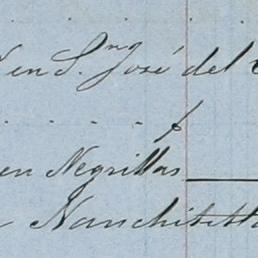 en S.ⁿ José del
en Negrillas
Nanchititla